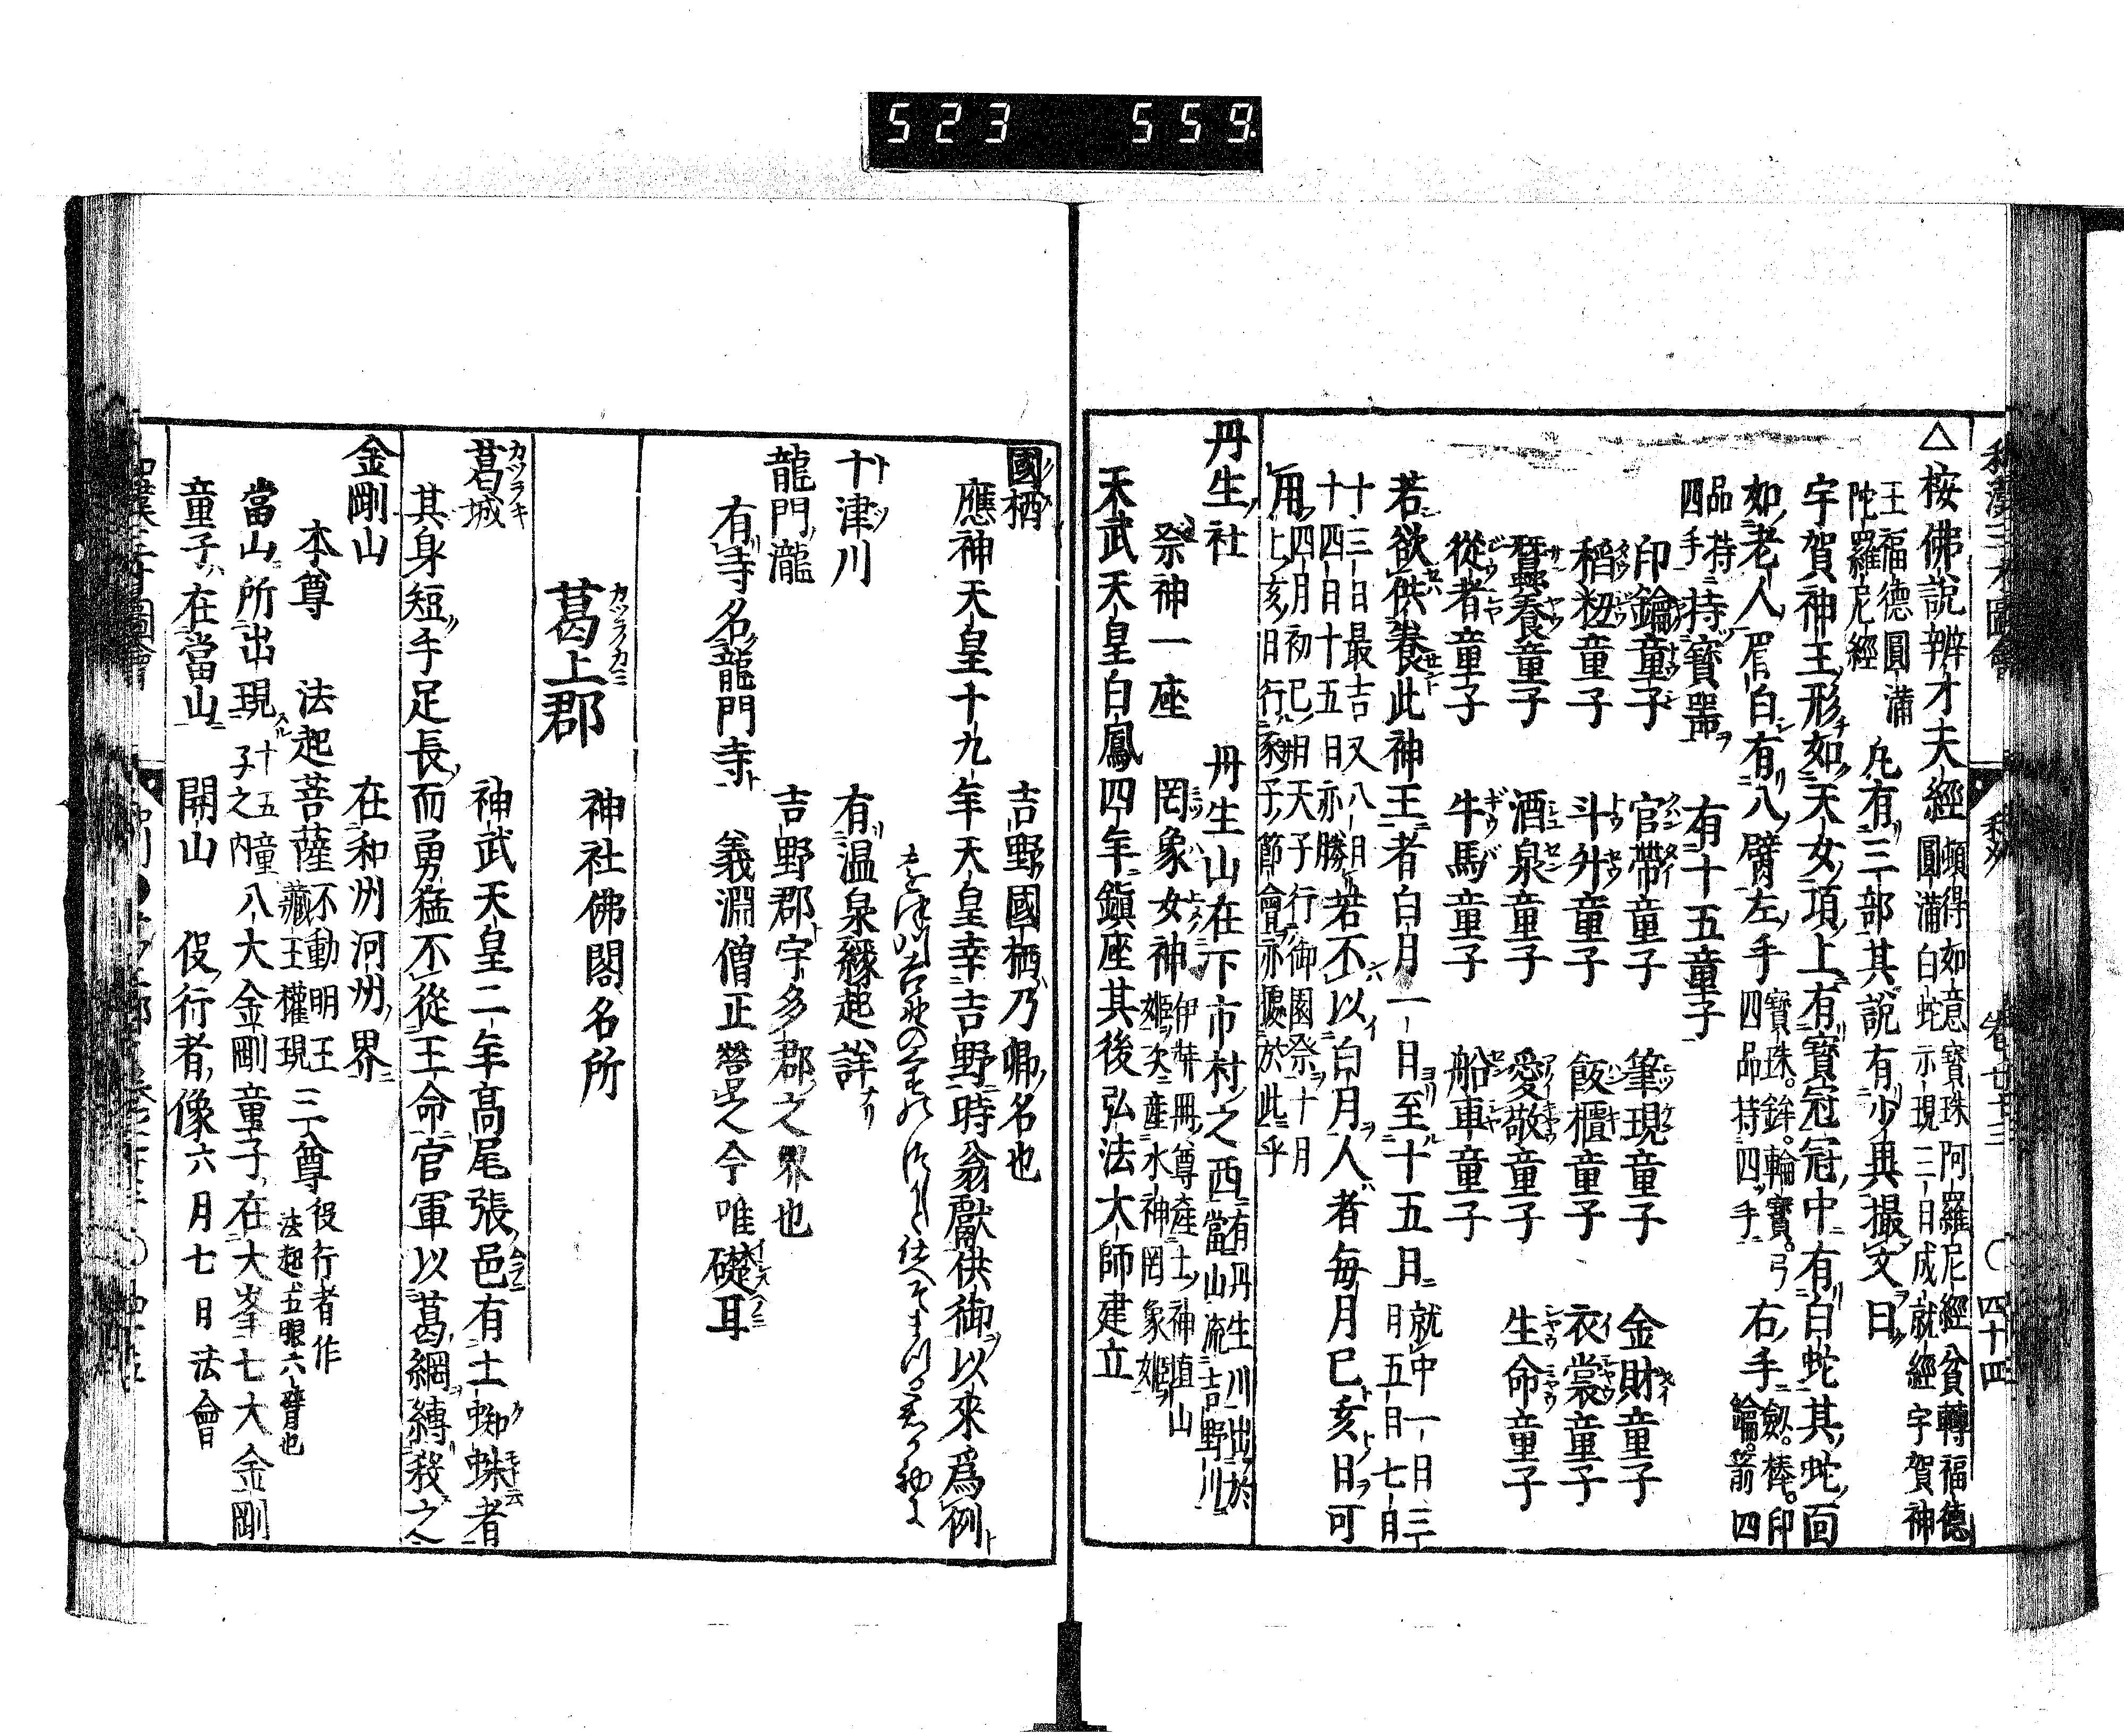 523 559
和漢三才圖會 和州 卷七十三 ○ 四十四
△按佛說辨才天經 頻得如意寶珠阿羅尼經貧轉福德
圓滿白蛇示現三日成就經宇賀神
王福德圓滿
陀羅尼經
凡有三部其說有少異撮文曰
宇賀神王形如天女項上有寶冠冠中有白蛇其蛇面
如老人眉白有八臂左手 寶珠。鉾。輪寶。弓
四品持四手
右手 劔。棒。印
鑰。箭四
品持
四手
持寶器 有十五童子
印鑰童子 官帶童子 筆現童子 金財童子
稻籾童子 斗升童子 飯櫃童子 衣裳童子
蠶養童子 酒泉童子 愛敬童子 生命童子
從者童子 牛馬童子 船車童子
若欲供養此神王者白月一日至十五月 就中一日三
月五日七日
十三日最吉又八日
十四日十五日亦勝
若不以白月人者每月巳亥日可
用 四月初巳日天子行御園祭十月
上亥日行豕子節會亦據於此乎
丹生社 丹生山在下市村之西 有丹生川出於
當山流吉野川
祭神一座 罔象女神 伊弉冊尊產土神埴山
姬次產水神罔象姬
天武天皇白鳳四年鎭座其後弘法大師建立
國栖 吉野國栖乃鄕名也
應神天皇十九年天皇幸吉野時翁獻供御以來爲例
十津川 有温泉緣起詳
龍門瀧 吉野郡宇多郡之界也
有寺名龍門寺 義淵僧正營足今唯礎耳
葛上郡 神社佛閣名所
葛城 神武天皇二年高尾張邑有土蜘蛛者
其身短手足長而勇猛不從王命官軍以葛網縛殺之
金剛山 在和州河州界
本尊 法起菩薩 不動明王
藏王權現
三尊 役行者作
法起五眼六臂也
當山所出現 十五童
子之內
八大金剛童子在大峯七大金剛
童子在當山 開山 役行者像六月七日法會